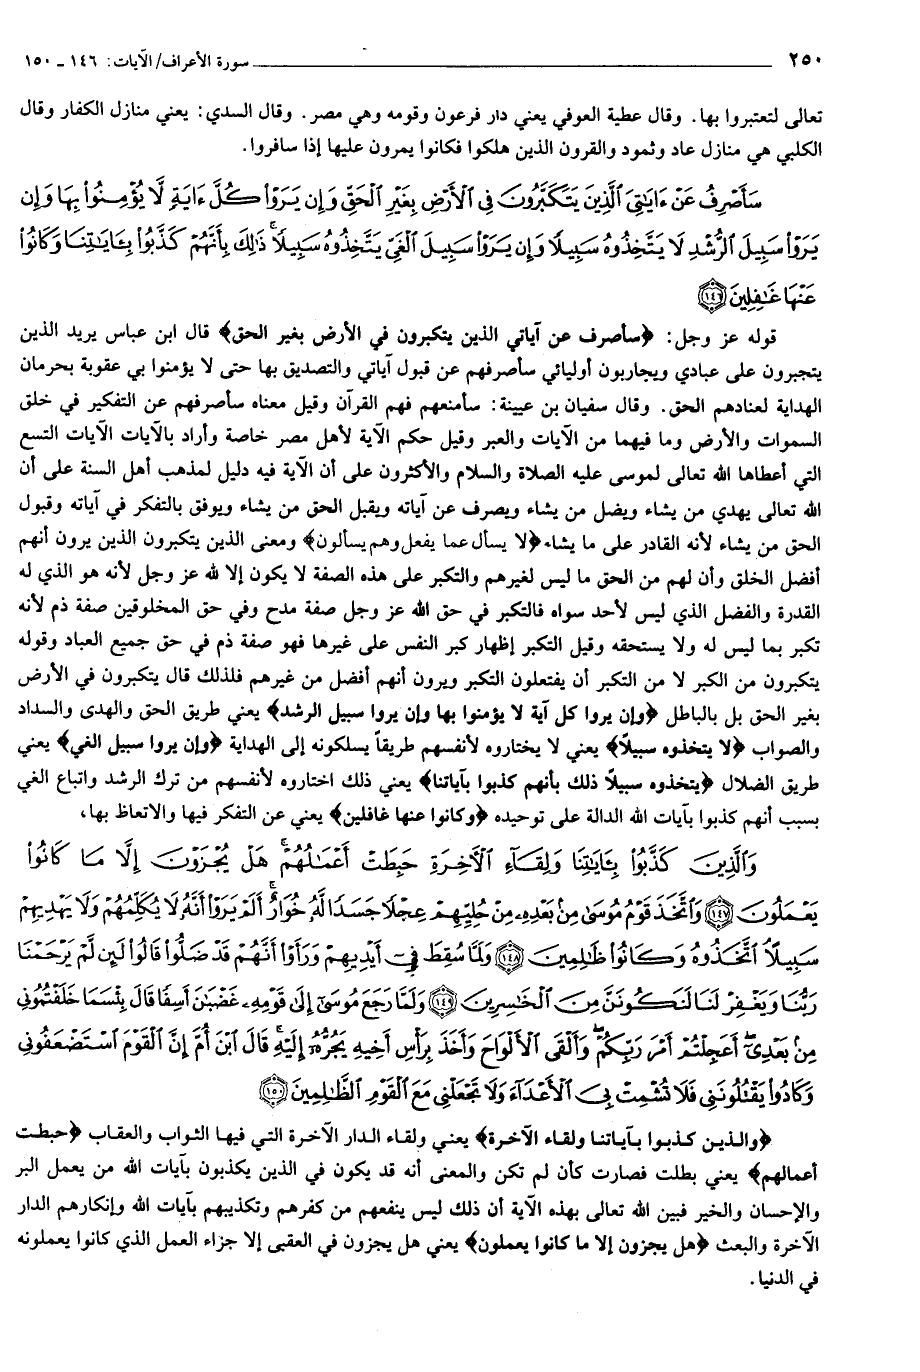 ٢٥٠ سورة الأعراف/ الآيات: ١٤٦ ـ ١٥٠
تعالى لتعتبروا بها. وقال عطية العوفي يعني دار فرعون وقومه وهي مصر. وقال السدي: يعني منازل الكفار وقال
الكلبي هي منازل عاد وثمود والقرون الذين هلكوا فكانوا يمرون عليها إذا سافروا.
سَأَصْرِفُ عَنْ ءَايَٰتِىَ ٱلَّذِينَ يَتَكَبَّرُونَ فِى ٱلْأَرْضِ بِغَيْرِ ٱلْحَقِّ وَإِن يَرَوْا۟ كُلَّ ءَايَةٍ لَّا يُؤْمِنُوا۟ بِهَا وَإِن
يَرَوْا۟ سَبِيلَ ٱلرُّشْدِ لَا يَتَّخِذُوهُ سَبِيلًا وَإِن يَرَوْا۟ سَبِيلَ ٱلْغَىِّ يَتَّخِذُوهُ سَبِيلًا ۚ ذَٰلِكَ بِأَنَّهُمْ كَذَّبُوا۟ بِـَٔايَٰتِنَا وَكَانُوا۟
عَنْهَا غَٰفِلِينَ ﴿١٤٦﴾
قوله عز وجل: ﴿سأصرف عن آياتي الذين يتكبرون في الأرض بغير الحق﴾ قال ابن عباس يريد الذين
يتجبرون على عبادي ويجاربون أوليائي سأصرفهم عن قبول آياتي والتصديق بها حتى لا يؤمنوا بي عقوبة بحرمان
الهداية لعنادهم الحق. وقال سفيان بن عيينة: سأمنعهم فهم القرآن وقيل معناه سأصرفهم عن التفكير في خلق
السموات والأرض وما فيهما من الآيات والعبر وقيل حكم الآية لأهل مصر خاصة وأراد بالآيات الآيات التسع
التي أعطاها الله تعالى لموسى عليه الصلاة والسلام والأكثرون على أن الآية فيه دليل لمذهب أهل السنة على أن
الله تعالى يهدي من يشاء ويضل من يشاء ويصرف عن آياته ويقبل الحق من يشاء ويوفق بالتفكر في آياته وقبول
الحق من يشاء لأنه القادر على ما يشاء ﴿لا يسأل عما يفعل وهم يسألون﴾ ومعنى الذين يتكبرون الذين يرون أنهم
أفضل الخلق وأن لهم من الحق ما ليس لغيرهم والتكبر على هذه الصفة لا يكون إلا لله عز وجل لأنه هو الذي له
القدرة والفضل الذي ليس لأحد سواه فالتكبر في حق الله عز وجل صفة مدح وفي حق المخلوقين صفة ذم لأنه
تكبر بما ليس له ولا يستحقه وقيل التكبر إظهار كبر النفس على غيرها فهو صفة ذم في حق جميع العباد وقوله
يتكبرون من الكبر لا من التكبر أن يفتعلون التكبر ويرون أنهم أفضل من غيرهم فلذلك قال يتكبرون في الأرض
بغير الحق بل بالباطل ﴿وإن يروا كل آية لا يؤمنوا بها وإن يروا سبيل الرشد﴾ يعني طريق الحق والهدى والسداد
والصواب ﴿لا يتخذوه سبيلاً﴾ يعني لا يختاروه لأنفسهم طريقاً يسلكونه إلى الهداية ﴿وإن يروا سبيل الغي﴾ يعني
طريق الضلال ﴿يتخذوه سبيلاً ذلك بأنهم كذبوا بآياتنا﴾ يعني ذلك اختاروه لأنفسهم من ترك الرشد واتباع الغي
بسبب أنهم كذبوا بآيات الله الدالة على توحيده ﴿وكانوا عنها غافلين﴾ يعني عن التفكر فيها والاتعاظ بها،
وَٱلَّذِينَ كَذَّبُوا۟ بِـَٔايَٰتِنَا وَلِقَآءِ ٱلْءَاخِرَةِ حَبِطَتْ أَعْمَٰلُهُمْ ۚ هَلْ يُجْزَوْنَ إِلَّا مَا كَانُوا۟
يَعْمَلُونَ ﴿١٤٧﴾ وَٱتَّخَذَ قَوْمُ مُوسَىٰ مِنۢ بَعْدِهِۦ مِنْ حُلِيِّهِمْ عِجْلًا جَسَدًا لَّهُۥ خُوَارٌ ۚ أَلَمْ يَرَوْا۟ أَنَّهُۥ لَا يُكَلِّمُهُمْ وَلَا يَهْدِيهِمْ
سَبِيلًا ۘ ٱتَّخَذُوهُ وَكَانُوا۟ ظَٰلِمِينَ ﴿١٤٨﴾ وَلَمَّا سُقِطَ فِىٓ أَيْدِيهِمْ وَرَأَوْا۟ أَنَّهُمْ قَدْ ضَلُّوا۟ قَالُوا۟ لَئِن لَّمْ يَرْحَمْنَا
رَبُّنَا وَيَغْفِرْ لَنَا لَنَكُونَنَّ مِنَ ٱلْخَٰسِرِينَ ﴿١٤٩﴾ وَلَمَّا رَجَعَ مُوسَىٰٓ إِلَىٰ قَوْمِهِۦ غَضْبَٰنَ أَسِفًا قَالَ بِئْسَمَا خَلَفْتُمُونِى
مِنۢ بَعْدِىٓ ۖ أَعَجِلْتُمْ أَمْرَ رَبِّكُمْ ۖ وَأَلْقَى ٱلْأَلْوَاحَ وَأَخَذَ بِرَأْسِ أَخِيهِ يَجُرُّهُۥٓ إِلَيْهِ ۚ قَالَ ٱبْنَ أُمَّ إِنَّ ٱلْقَوْمَ ٱسْتَضْعَفُونِى
وَكَادُوا۟ يَقْتُلُونَنِى فَلَا تُشْمِتْ بِىَ ٱلْأَعْدَآءَ وَلَا تَجْعَلْنِى مَعَ ٱلْقَوْمِ ٱلظَّٰلِمِينَ ﴿١٥٠﴾
﴿والذين كذبوا بآياتنا ولقاء الآخرة﴾ يعني ولقاء الدار الآخرة التي فيها الثواب والعقاب ﴿حبطت
أعمالهم﴾ يعني بطلت فصارت كأن لم تكن والمعنى أنه قد يكون في الذين يكذبون بآيات الله من يعمل البر
والإحسان والخير فبين الله تعالى بهذه الآية أن ذلك ليس ينفعهم من كفرهم وتكذيبهم بآيات الله وإنكارهم الدار
الآخرة والبعث ﴿هل يجزون إلا ما كانوا يعملون﴾ يعني هل يجزون في العقبى إلا جزاء العمل الذي كانوا يعملونه
في الدنيا.